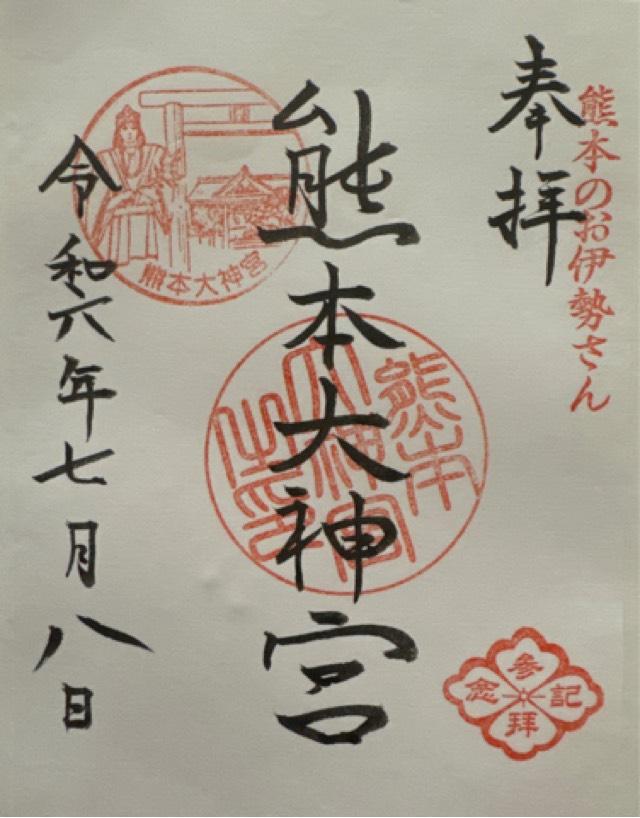 奉拝
熊本のお伊勢さん
熊本大神宮
熊本大神宮
熊本
大神宮
之印
令和六年七月八日
参拝
記念